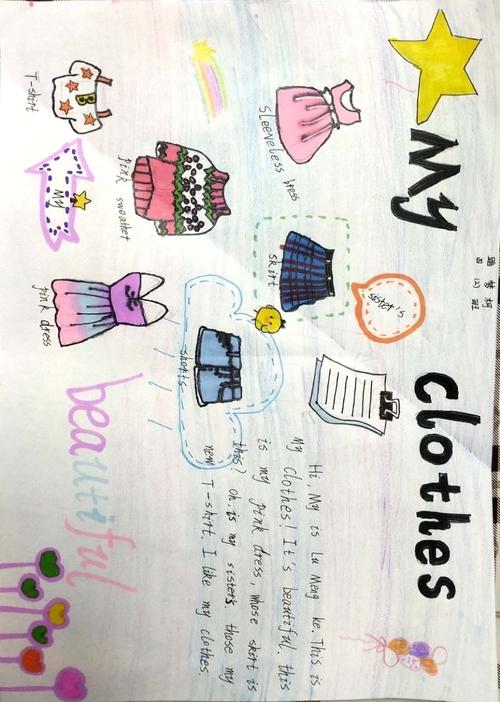 My clothes
路梦柯
四(3)班
sister's
sleeveless dress
skirt
T-shirt
pink sweather
My
shorts
pink dress
beautiful
Hi, My is Lu Meng ke. This is
My clothes! It's beautiful. this
is my pink dress, whose skirt is
this? Oh, is my sister's those my
new T-shirt. I like my clothes.